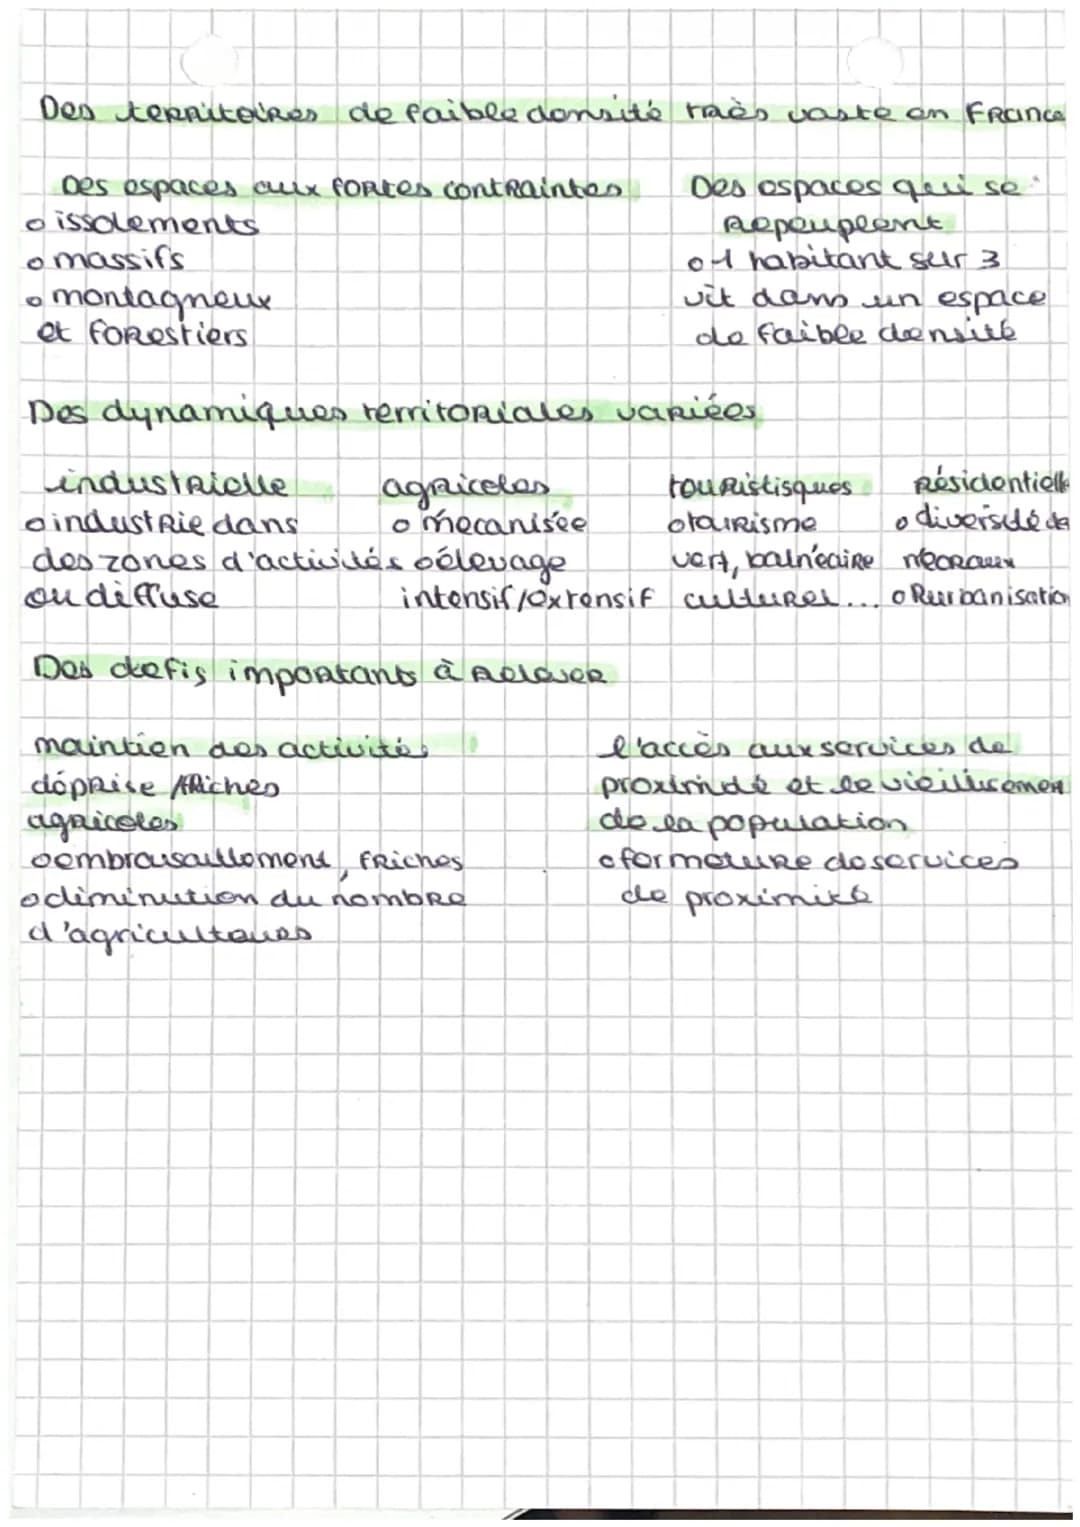 Des territoires de faible densité très vaste en France
Des espaces aux fortes contraintes
o issolements
o massifs
o montagneux
et forestiers
Des espaces qui se
repeuplent
o 1 habitant sur 3
vit dans un espace
de faible densité
Des dynamiques territoriales variées
industrielle
o industrie dans
des zones d'activités
ou diffuse
agricoles
o mecanisée
o élevage
intensif/extensif
touristisques
o tourisme
vert, balnéaire
culturel...
résidentielle
o diversité de
néoraux
o Rurbanisation
Des defis important à relever
maintien des activités
déprise friches
agricoles
o embrousaillement, friches
o diminution du nombre
d'agriculteurs
l'accès aux services de
proximité et le vieillisement
de la population
o fermeture de services
de proximité